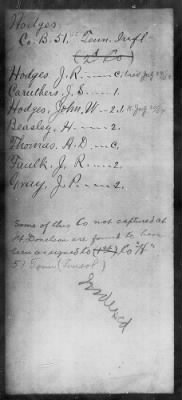 Hodges
Co. B. 51. Tenn. Infl
(2d Co)
Hodges, J. R. — C.
Caruthers, J. S. — 1.
Hodges, John, W — 2.
Beasley, H — 2.
Thomas, A. D — C.
Faulk, J. R — 2.
Gray, J. P. — 2.
Some of this Co not captured at
Ft. Donelson are found to have
been assigned to Co "H"
51 Tenn (Consol)